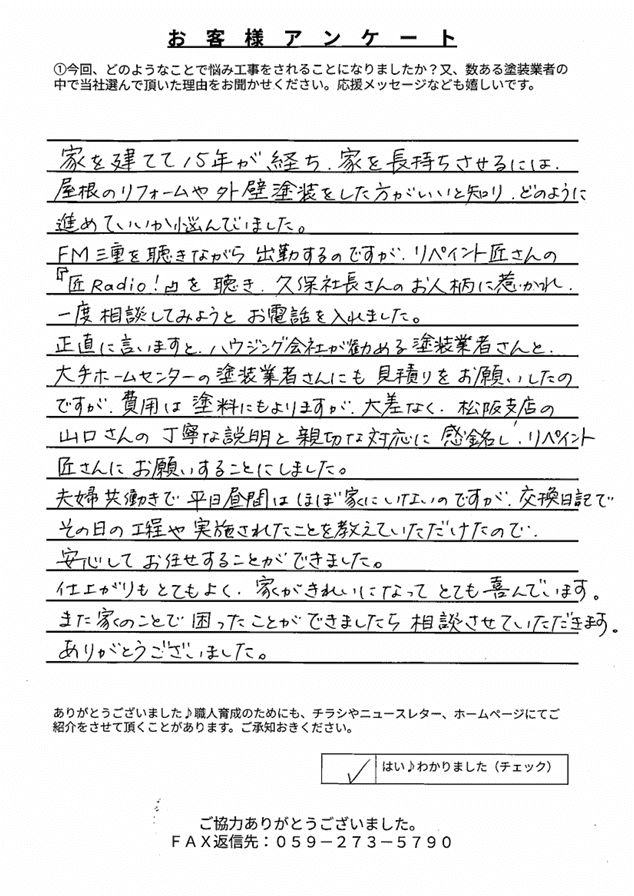 お客様アンケート
①今回、どのようなことで悩み工事をされることになりましたか？又、数ある塗装業者の
中で当社選んで頂いた理由をお聞かせください。応援メッセージなども嬉しいです。
家を建てて15年が経ち、家を長持ちさせるには、
屋根のリフォームや外壁塗装をした方がいいと知り、どのように
進めていいか悩んでいました。
FM三重を聴きながら出勤するのですが、リペイント匠さんの
『匠Radio！』を聴き、久保社長さんのお人柄に惹かれ、
一度相談してみようとお電話を入れました。
正直に言いますと、ハウジング会社が勧める塗装業者さんと、
大手ホームセンターの塗装業者さんにも見積りをお願いしたの
ですが、費用は塗料にもよりますが、大差なく、松阪支店の
山口さんの丁寧な説明と親切な対応に感銘し、リペイント
匠さんにお願いすることにしました。
夫婦共働きで平日昼間はほぼ家にいないのですが、交換日記で
その日の工程や実施されたことを教えていただけたので、
安心してお任せすることができました。
仕上がりもとてもよく、家がきれいになってとても喜んでいます。
また家のことで困ったことができましたら相談させていただきます。
ありがとうございました。
ありがとうございました♪職人育成のためにも、チラシやニュースレター、ホームページにてご
紹介をさせて頂くことがあります。ご承知おきください。
✓ はい♪わかりました（チェック）
ご協力ありがとうございました。
FAX返信先：059－273－5790